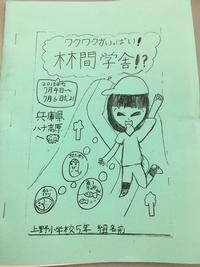 ワクワクがいっぱい!
林間学舎!?
7月4日〜
7月6日
兵庫県
ハチ高原
へ
上野小学校5年 組名前